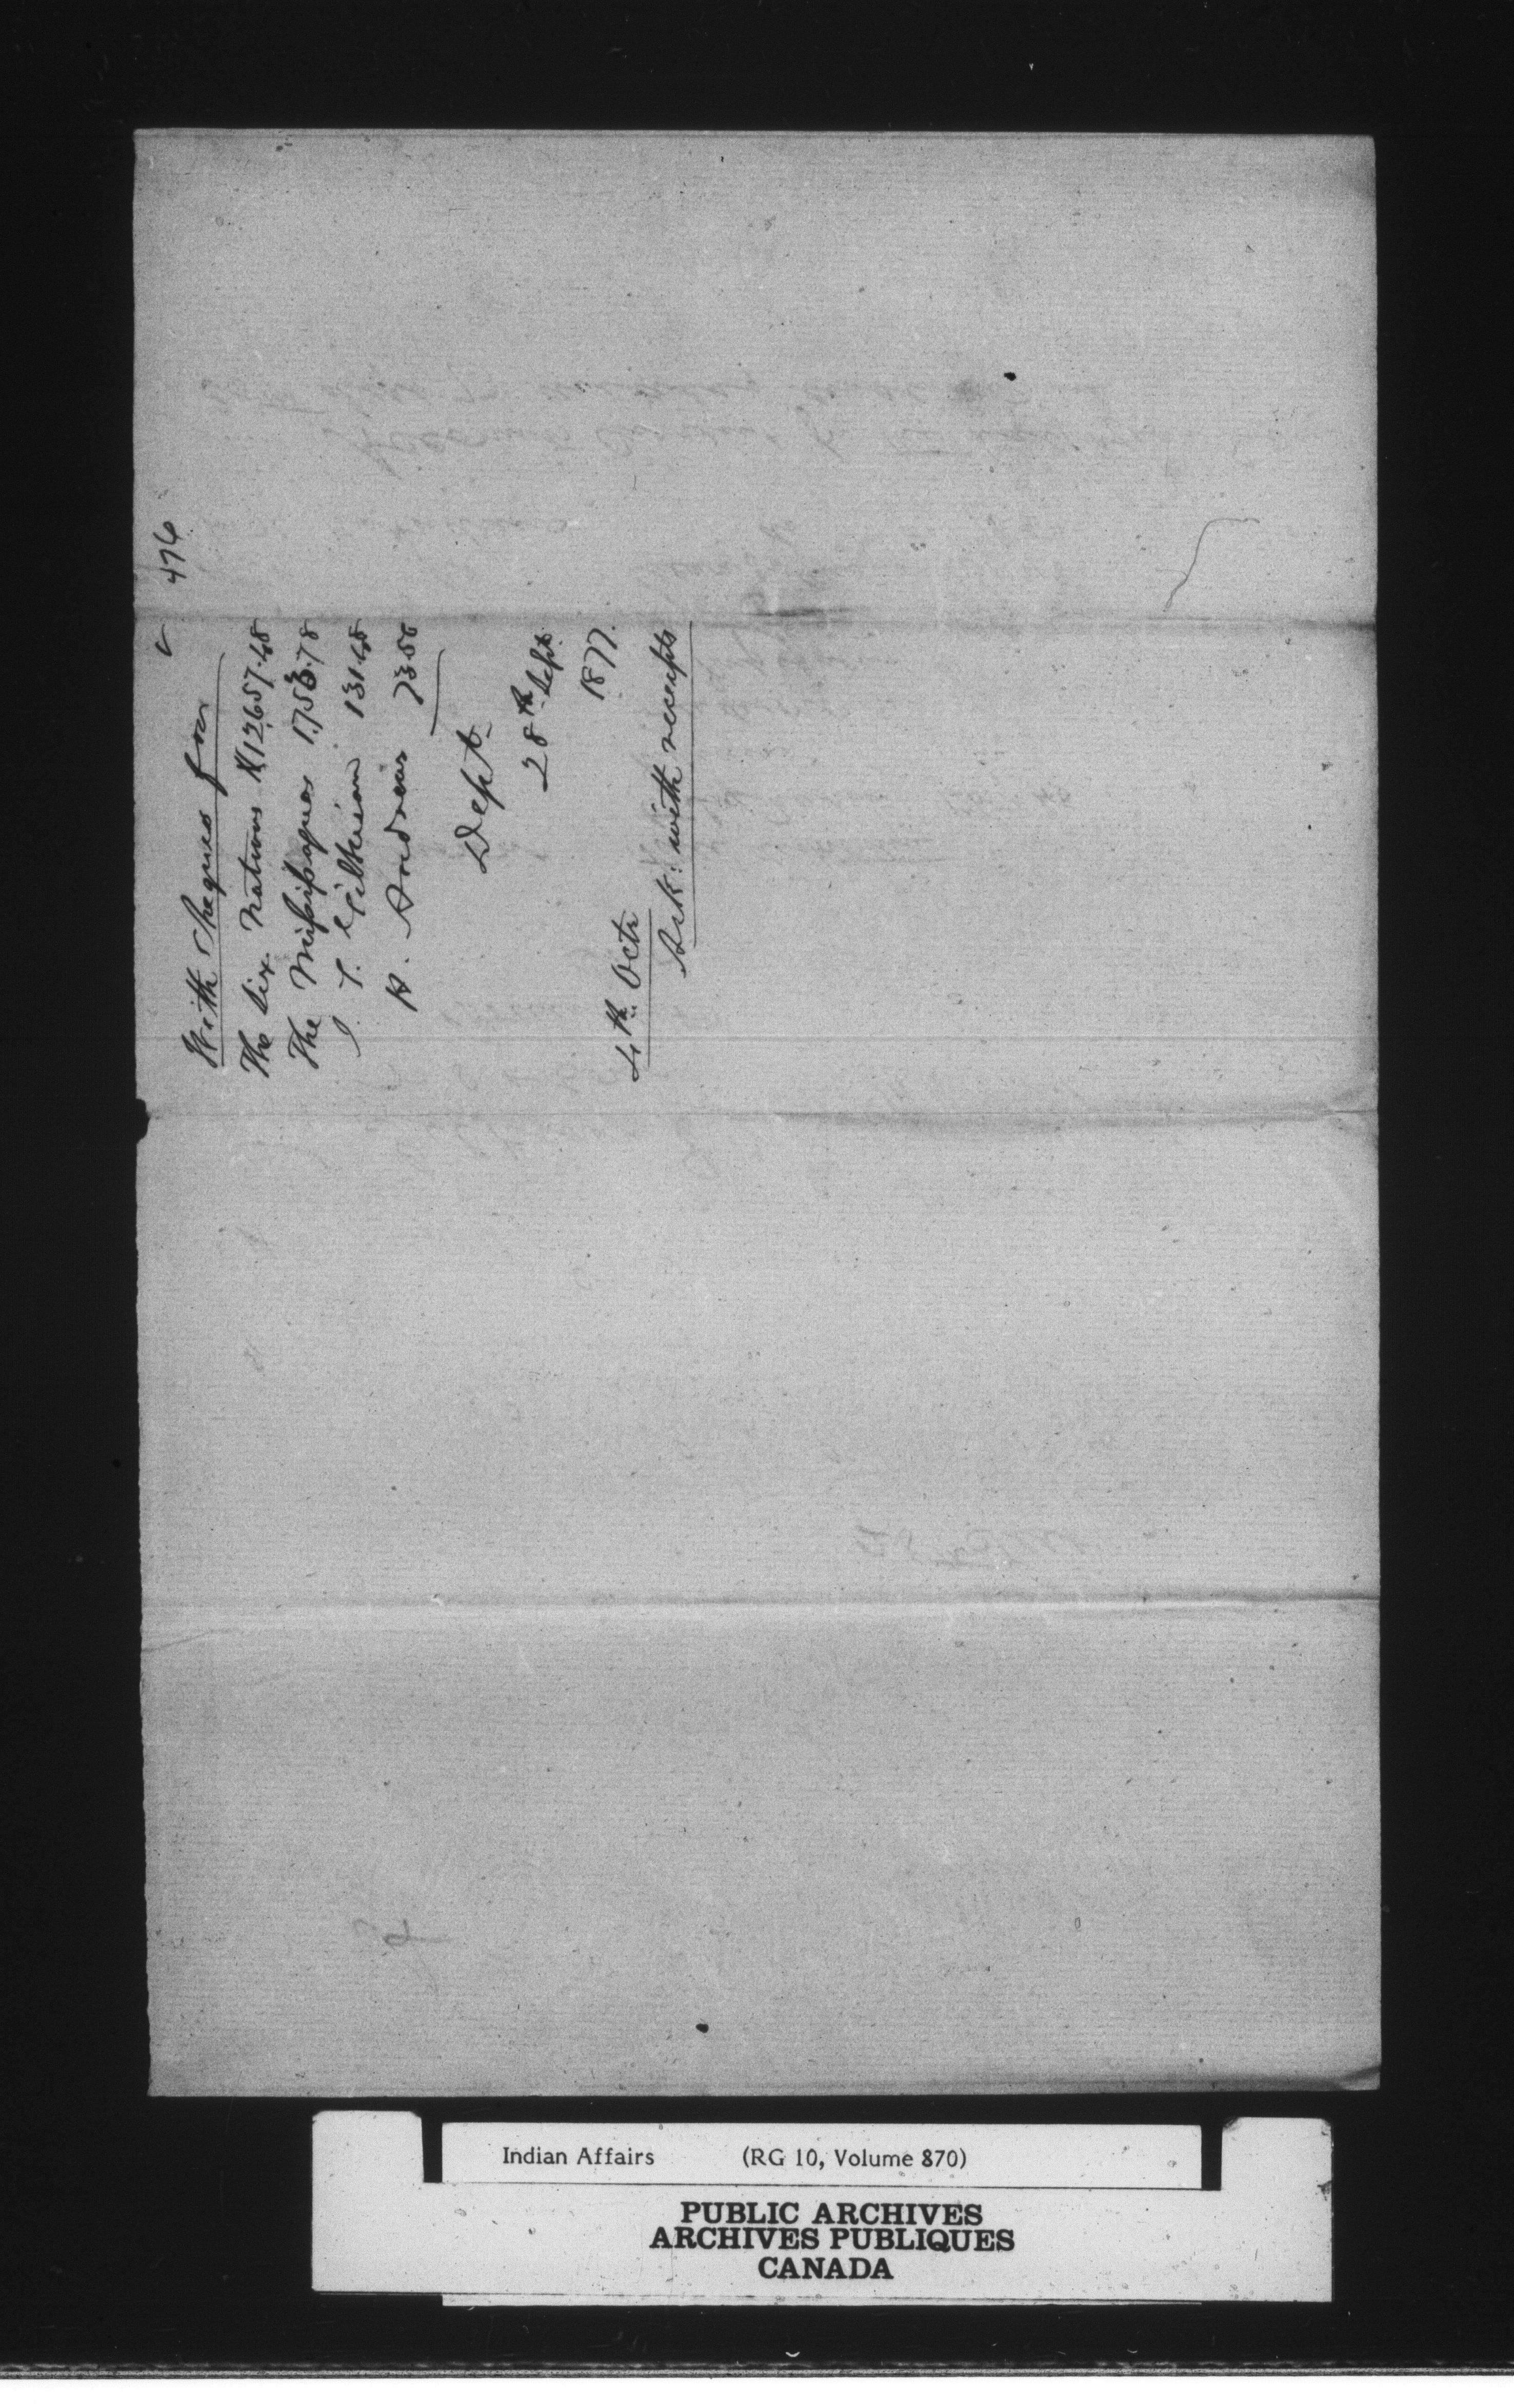 476
With Cheques for
The Six Nations $12,657.48
The Missisaguas 1,753.78
J. T. Gilkison 131.48
H. Andrews 73.50
Dept.
28th Sept.
1877.
4th Octr
Ack: with receipts
Indian Affairs (RG 10, Volume 870)
PUBLIC ARCHIVES
ARCHIVES PUBLIQUES
CANADA